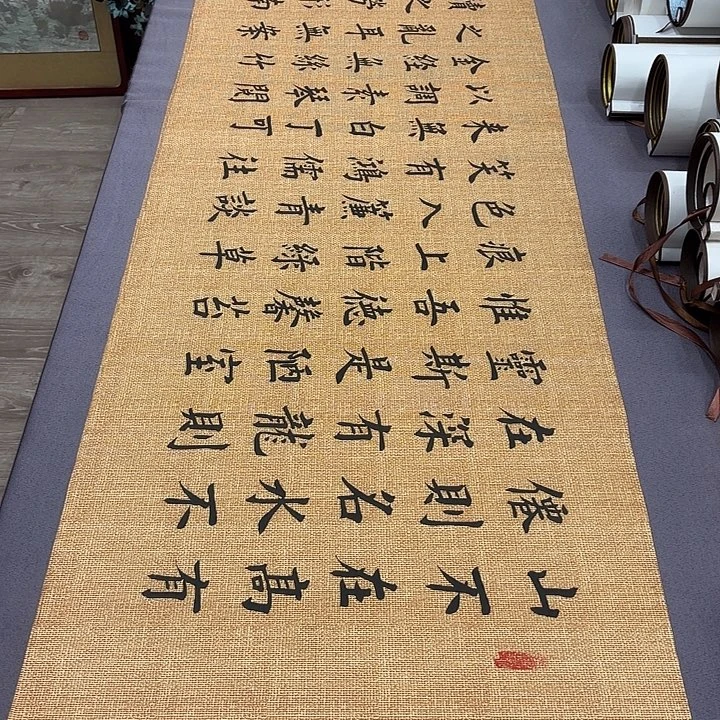 山不在髙有
僊則名水不
在深有龍則
靈斯是陋室
惟吾德馨苔
痕上階綠草
色入簾青談
笑有鴻儒往
来無白丁可
以調素琴閱
金經無絲竹
之亂耳無案